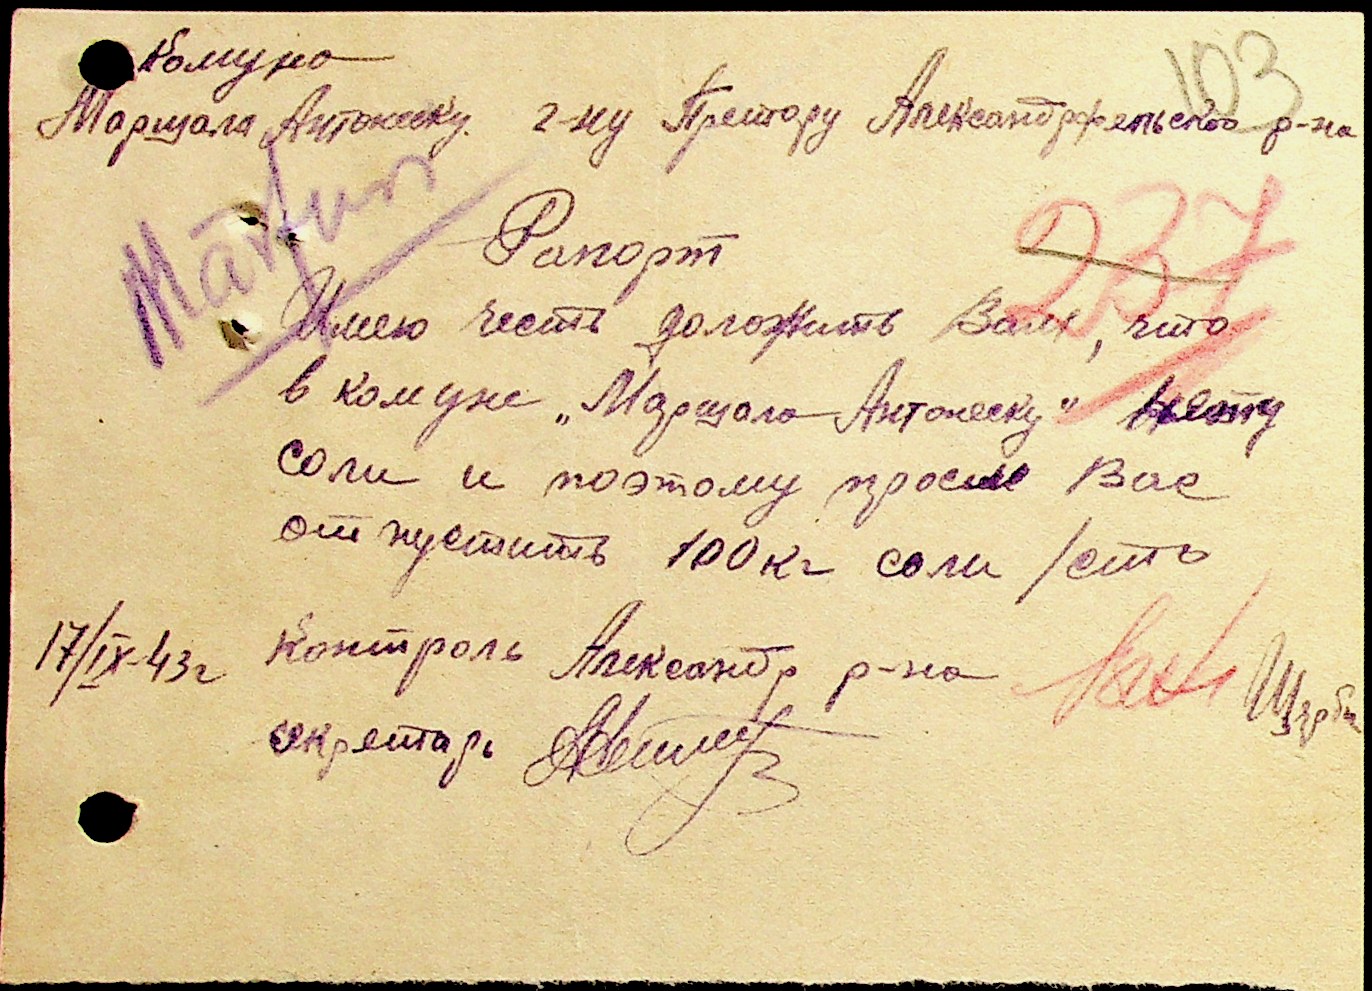 103
Комуна
Маршала Антонеску. г-ну Претору Александрфельского р-на
237
Рапорт
Имею честь доложить Вам, что
в комуне „Маршала Антонеску" нету
соли и поэтому просим Вас
отпустить 100 кг соли /сто
17/IX-43 г Контроль Александр р-на
секретарь